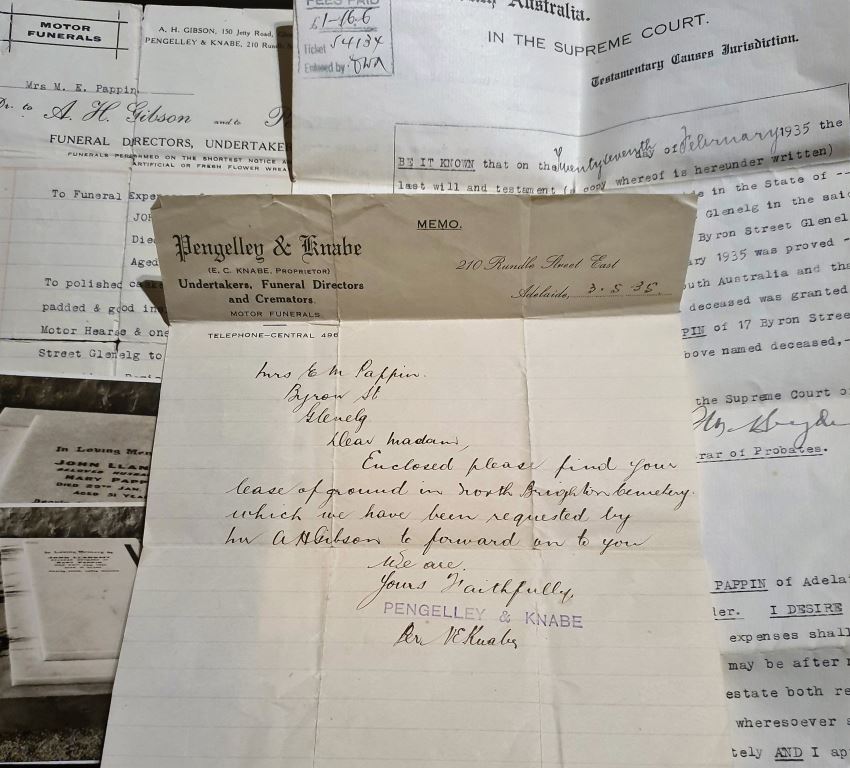 MOTOR
FUNERALS
A. H. GIBSON, 150 Jetty Road,
PENGELLEY & KNABE, 210
Mrs M. E. Pappin
Dr. to A. H. Gibson and to P
FUNERAL DIRECTORS, UNDERTAKE
FUNERALS PERFORMED ON THE SHORTEST NOTICE
ARTIFICIAL OR FRESH FLOWER WREA
To Funeral Expen
JOH
Died
Aged
To polished
padded & good in
Motor Hearse & one
Street Glenelg to
FEES PAID
£1-16.6
Ticket 54134
Entered by
Australia.
IN THE SUPREME COURT.
Testamentary Causes Jurisdiction.
BE IT KNOWN that on the Twentyseventh day of February 1935 the
last will and testament (a copy whereof is hereunder written)
in the State of --
Glenelg in the said
Byron Street Glenel
ary 1935 was proved -
outh Australia and tha
deceased was granted
PIN of 17 Byron Stree
bove named deceased,-
the Supreme Court of
rar of Probates.
PAPPIN of Adelai
ler. I DESIRE
expenses shall
may be after m
estate both re
wheresoever s
tely AND I ap
MEMO.
Pengelley & Knabe
(E. C. KNABE, PROPRIETOR)
Undertakers, Funeral Directors
and Cremators.
MOTOR FUNERALS
TELEPHONE-CENTRAL 496
210 Rundle Street East
Adelaide, 3.5.35.
Mrs E M Pappin.
Byron St
Glenelg
Dear Madam,
Enclosed please find your
lease of ground in North Brighton Cemetery.
which we have been requested by
Mr A H Gibson to forward on to you
We are.
Yours Faithfully,
PENGELLEY & KNABE
Per
In Loving Mem
JOHN LLAN
BELOVED HUSBA
MARY PAPP
DIED 29TH JAN.
AGED 51 YEA
In Loving Memory